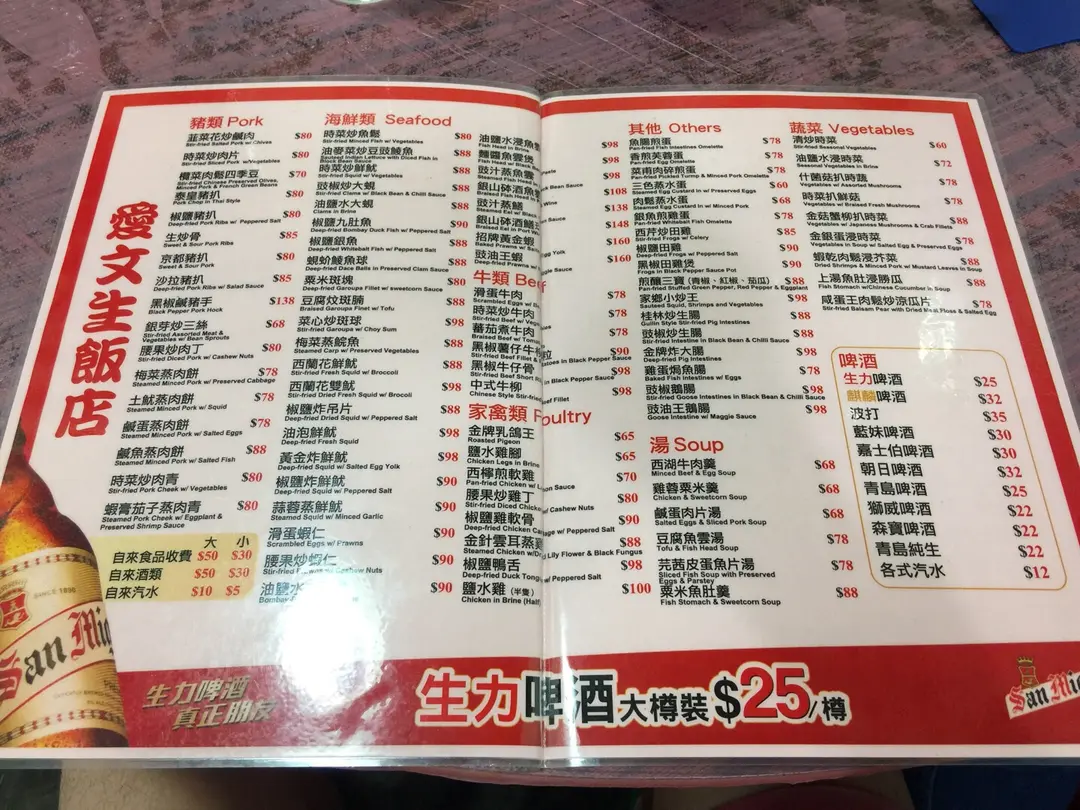 愛文生飯店
豬類 Pork
韮菜花炒鹹肉 $80
Stir-fried Salted Pork w/ Chives
時菜炒肉片 $80
Stir-fried Sliced Pork w/Vegetables
欖菜肉鬆四季豆 $70
Stir-fried Chinese Preserved Olives,
Minced Pork & French Green Beans
泰皇豬扒 $80
Pork Chop in Thai Style
椒鹽豬扒 $80
Deep-fried Pork Ribs w/ Peppered Salt
生炒骨 $85
Sweet & Sour Pork Ribs
京都豬扒 $80
Sweet & Sour Pork
沙拉豬扒 $85
Deep-fried Pork Ribs w/ Salad Sauce
黑椒鹹豬手 $138
Black Pepper Pork Hock
銀芽炒三絲 $68
Stir-fried Assorted Meat &
Vegetables w/ Bean Sprouts
腰果炒肉丁 $80
Stir-fried Diced Pork w/ Cashew Nuts
梅菜蒸肉餅 $78
Steamed Minced Pork w/ Preserved Cabbage
土魷蒸肉餅 $78
Steamed Minced Pork w/ Squid
鹹蛋蒸肉餅 $78
Steamed Minced Pork w/ Salted Eggs
鹹魚蒸肉餅 $88
Steamed Minced Pork w/ Salted Fish
時菜炒肉青 $80
Stir-fried Pork Cheek w/ Vegetables
蝦膏茄子蒸肉青 $80
Steamed Pork Cheek w/ Eggplant &
Preserved Shrimp Sauce
大 小
自來食品收費 $50 $30
自來酒類 $50 $30
自來汽水 $10 $5
海鮮類 Seafood
時菜炒魚鬆 $80
Stir-fried Minced Fish w/ Vegetables
油麥菜炒豆豉鯪魚 $88
Sauteed Indian Lettuce with Diced Fish in
Black Bean Sauce
時菜炒鮮魷 $88
Stir-fried Squid w/ Vegetables
豉椒炒大蜆 $88
Stir-fried Clams w/ Black Bean & Chili Sauce
油鹽水大蜆 $88
Clams in Brine
椒鹽九肚魚 $90
Deep-fried Bombay Duck Fish w/ Peppered Salt
椒鹽銀魚 $88
Deep-fried Whitebait Fish w/ Peppered Salt
蜆蚧鯪魚球 $88
Deep-fried Dace Balls in Preserved Clam Sauce
粟米斑塊 $80
Deep-fried Garoupa Fillet w/ sweetcorn Sauce
豆腐炆斑腩 $88
Braised Garoupa Finet w/ Tofu
菜心炒斑球 $98
Stir-fried Garoupa w/ Choy Sum
梅菜蒸鯇魚 $88
Steamed Carp w/ Preserved Vegetables
西蘭花鮮魷 $88
Stir-fried Fresh Squid w/ Broccoli
西蘭花雙魷 $98
Stir-fried Dried Squid w/ Brocoli
椒鹽炸吊片 $88
Deep-fried Dried Squid w/ Peppered Salt
油泡鮮魷 $98
Deep-fried Fresh Squid
黃金炸鮮魷 $98
Deep-fried Squid w/ Salted Egg Yolk
椒鹽炸鮮魷 $90
Deep-fried Squid w/ Peppered Salt
蒜蓉蒸鮮魷 $90
Steamed Squid w/ Minced Garlic
滑蛋蝦仁 $90
Scrambled Eggs w/ Prawns
腰果炒蝦仁 $90
Stir-fried Prawns w/ Cashew Nuts
油鹽水 $90
Bombay
油鹽水浸魚 $98
Fish Head in
麵醬魚雲煲 $98
Fish Head w/ Bean Sauce
豉汁蒸魚雲 $98
Steamed Fish
銀山砵酒魚 $108
Braised Fish Head in Wine
豉汁蒸鱔 $138
Steamed Eel w/ Black
銀山砵酒鱔 $148
Braised Eel in Port
招牌黃金蝦 $160
Baked Prawns w/ Yolk
豉油王蝦 $160
Deep-fried Prawns w/ Sauce
牛類 Beef
滑蛋牛肉
Scrambled Eggs w/
時菜炒牛肉
Stir-fried Beef w/
蕃茄煮牛肉
Braised Beef w/
黑椒薯仔牛柳粒 $90
Stir-fried Beef Fillet & Potatoes in Black Pepper Sauce
黑椒牛仔骨 $98
Stir-fried Beef Short in Black Pepper Sauce
中式牛柳 $98
Chinese Style Stir-fried Beef Fillet
家禽類 Poultry
金牌乳鴿王 $65
Roasted Pigeon
鹽水雞腳 $65
Chicken Legs in Brine
西檸煎軟雞 $70
Pan-fried Chicken w/ Lemon Sauce
腰果炒雞丁 $80
Stir-fried Diced Chicken w/ Cashew Nuts
椒鹽雞軟骨 $90
Deep-fried Chicken w/ Peppered Salt
金針雲耳蒸 $88
Steamed Chicken w/ Lily Flower & Black Fungus
椒鹽鴨舌 $98
Deep-fried Duck Tongue w/ Peppered Salt
鹽水雞 (半隻) $100
Chicken in Brine (Half)
其他 Others
魚腸煎蛋 $78
Pan-fried Fish Intestines Omelette
香煎芙蓉蛋 $78
Pan-fried Egg Omelette
菜甫肉碎煎蛋 $78
Pan-fried Pickled Turnip & Minced Pork Omelette
三色蒸水蛋 $60
Steamed Egg Custard in w/ Preserved Eggs
肉鬆蒸水蛋 $68
Steamed Egg Custard in w/ Minced Pork
銀魚煎雞蛋 $78
Pan-fried Whitebait Fish Omelette
西芹炒田雞 $85
Stir-fried Frogs w/ Celery
椒鹽田雞 $90
Deep-fried Frogs w/ Peppered Salt
黑椒田雞煲 $90
Frogs in Black Pepper Sauce Pot
煎釀三寶 (青椒、紅椒、茄瓜) $88
Pan-fried Stuffed Green Pepper, Red Pepper & Eggplant
家鄉小炒王 $98
Sauteed Squid, Shrimps and Vegetables
桂林炒生腸 $88
Guilin Style Stir-fried Pig Intestines
豉椒炒生腸 $88
Stir-fried Intestine w/ Black Bean & Chili Sauce
金牌炸大腸 $98
Deep-fried Pig Intestines
雞蛋焗魚腸 $78
Baked Fish Intestines w/ Eggs
豉椒鵝腸 $98
Stir-fried Goose Intestines in Black Bean & Chilli Sauce
豉油王鵝腸 $98
Goose Intestine w/ Maggie Sauce
湯 Soup
西湖牛肉羹 $68
Minced Beef & Egg Soup
雞蓉粟米羹 $68
Chicken & Sweetcorn Soup
鹹蛋肉片湯 $68
Salted Eggs & Sliced Pork Soup
豆腐魚雲湯 $78
Tofu & Fish Head Soup
芫茜皮蛋魚片湯 $78
Sliced Fish Soup with Preserved
Eggs & Parsley
粟米魚肚羹 $88
Fish Stomach & Sweetcorn Soup
蔬菜 Vegetables
清炒時菜 $60
Stir-fried Seasonal Vegetables
油鹽水浸時菜 $72
Seasonal Vegetables in Brine
什菌菇扒時蔬 $78
Vegetables w/ Assorted Mushrooms
時菜扒鮮菇 $78
Vegetables w/ Braised Fresh Mushrooms
金菇蟹柳扒時菜 $88
Vegetables w/ Japanese Mushrooms & Crab Fillets
金銀蛋浸時菜 $78
Vegetables in Soup w/ Salted Egg & Preserved Eggs
蝦乾肉鬆浸芥菜 $88
Dried Shrimps & Minced Pork w/ Mustard Leaves in Soup
上湯魚肚浸勝瓜 $88
Fish Stomach w/Chinese Cucumber in Soup
咸蛋王肉鬆炒涼瓜片 $78
Stir-fried Balsam Pear with Dried Meat Floss & Salted Egg
啤酒
生力啤酒 $25
麒麟啤酒 $32
波打 $35
藍妹啤酒 $30
嘉士伯啤酒 $30
朝日啤酒 $32
青島啤酒 $25
獅威啤酒 $22
森寶啤酒 $22
青島純生 $22
各式汽水 $12
SINCE 1890
San Mig
生力啤酒
真正朋友
生力啤酒大樽裝$25/樽
San Mig